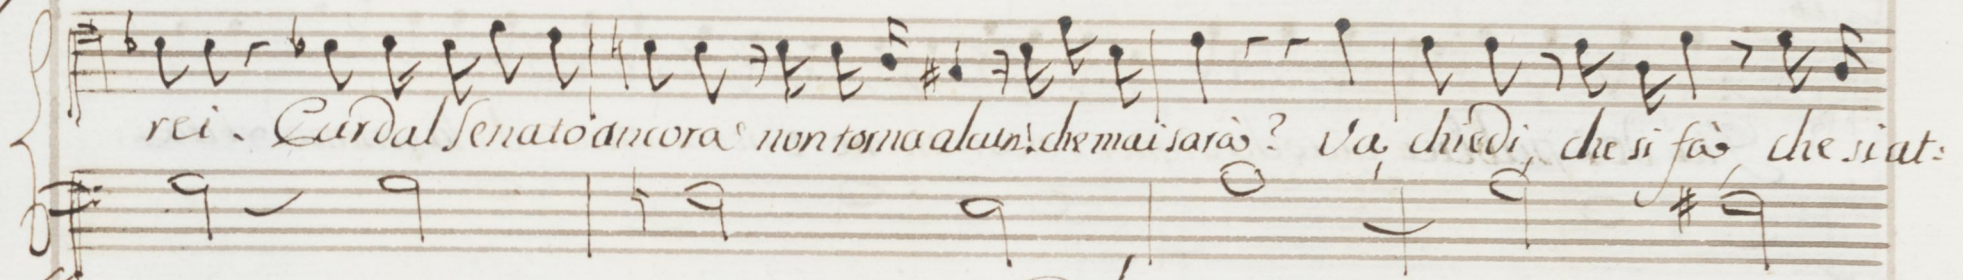 rei. Curdal Senato ancora non torna alcun! che mai sarà? Va chiedi, che si fà che si at: